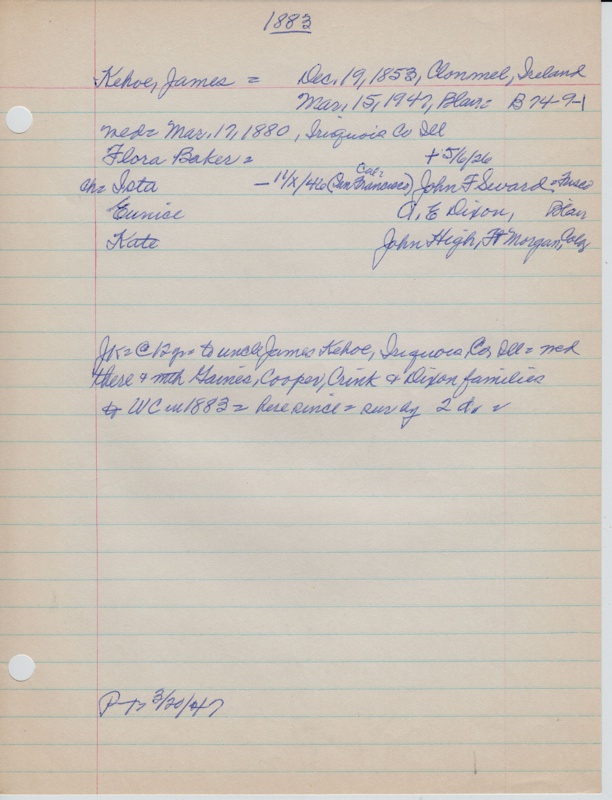 1883
Kehoe, James = Dec. 19, 1853, Clonmel, Ireland
Mar. 15, 1947, Blair = B 74-9-1
med = Mar. 17, 1880, Iriquois Co Ill
Flora Baker = + 5/6/26
ch = Ista - 11/X/46 (San Francisco) Cal = John F Seward = Frisco
Eunice A. E Dixon, Blair
Kate John High, Ft Morgan, Colo
JK = @ 12 yr = to uncle James Kehoe, Iriquois, Co, Ill = med
there & with Gaines, Cooper, Crink & Dixon families
to WC in 1883 = here since = sur by 2 da
P-T= 3/20/47